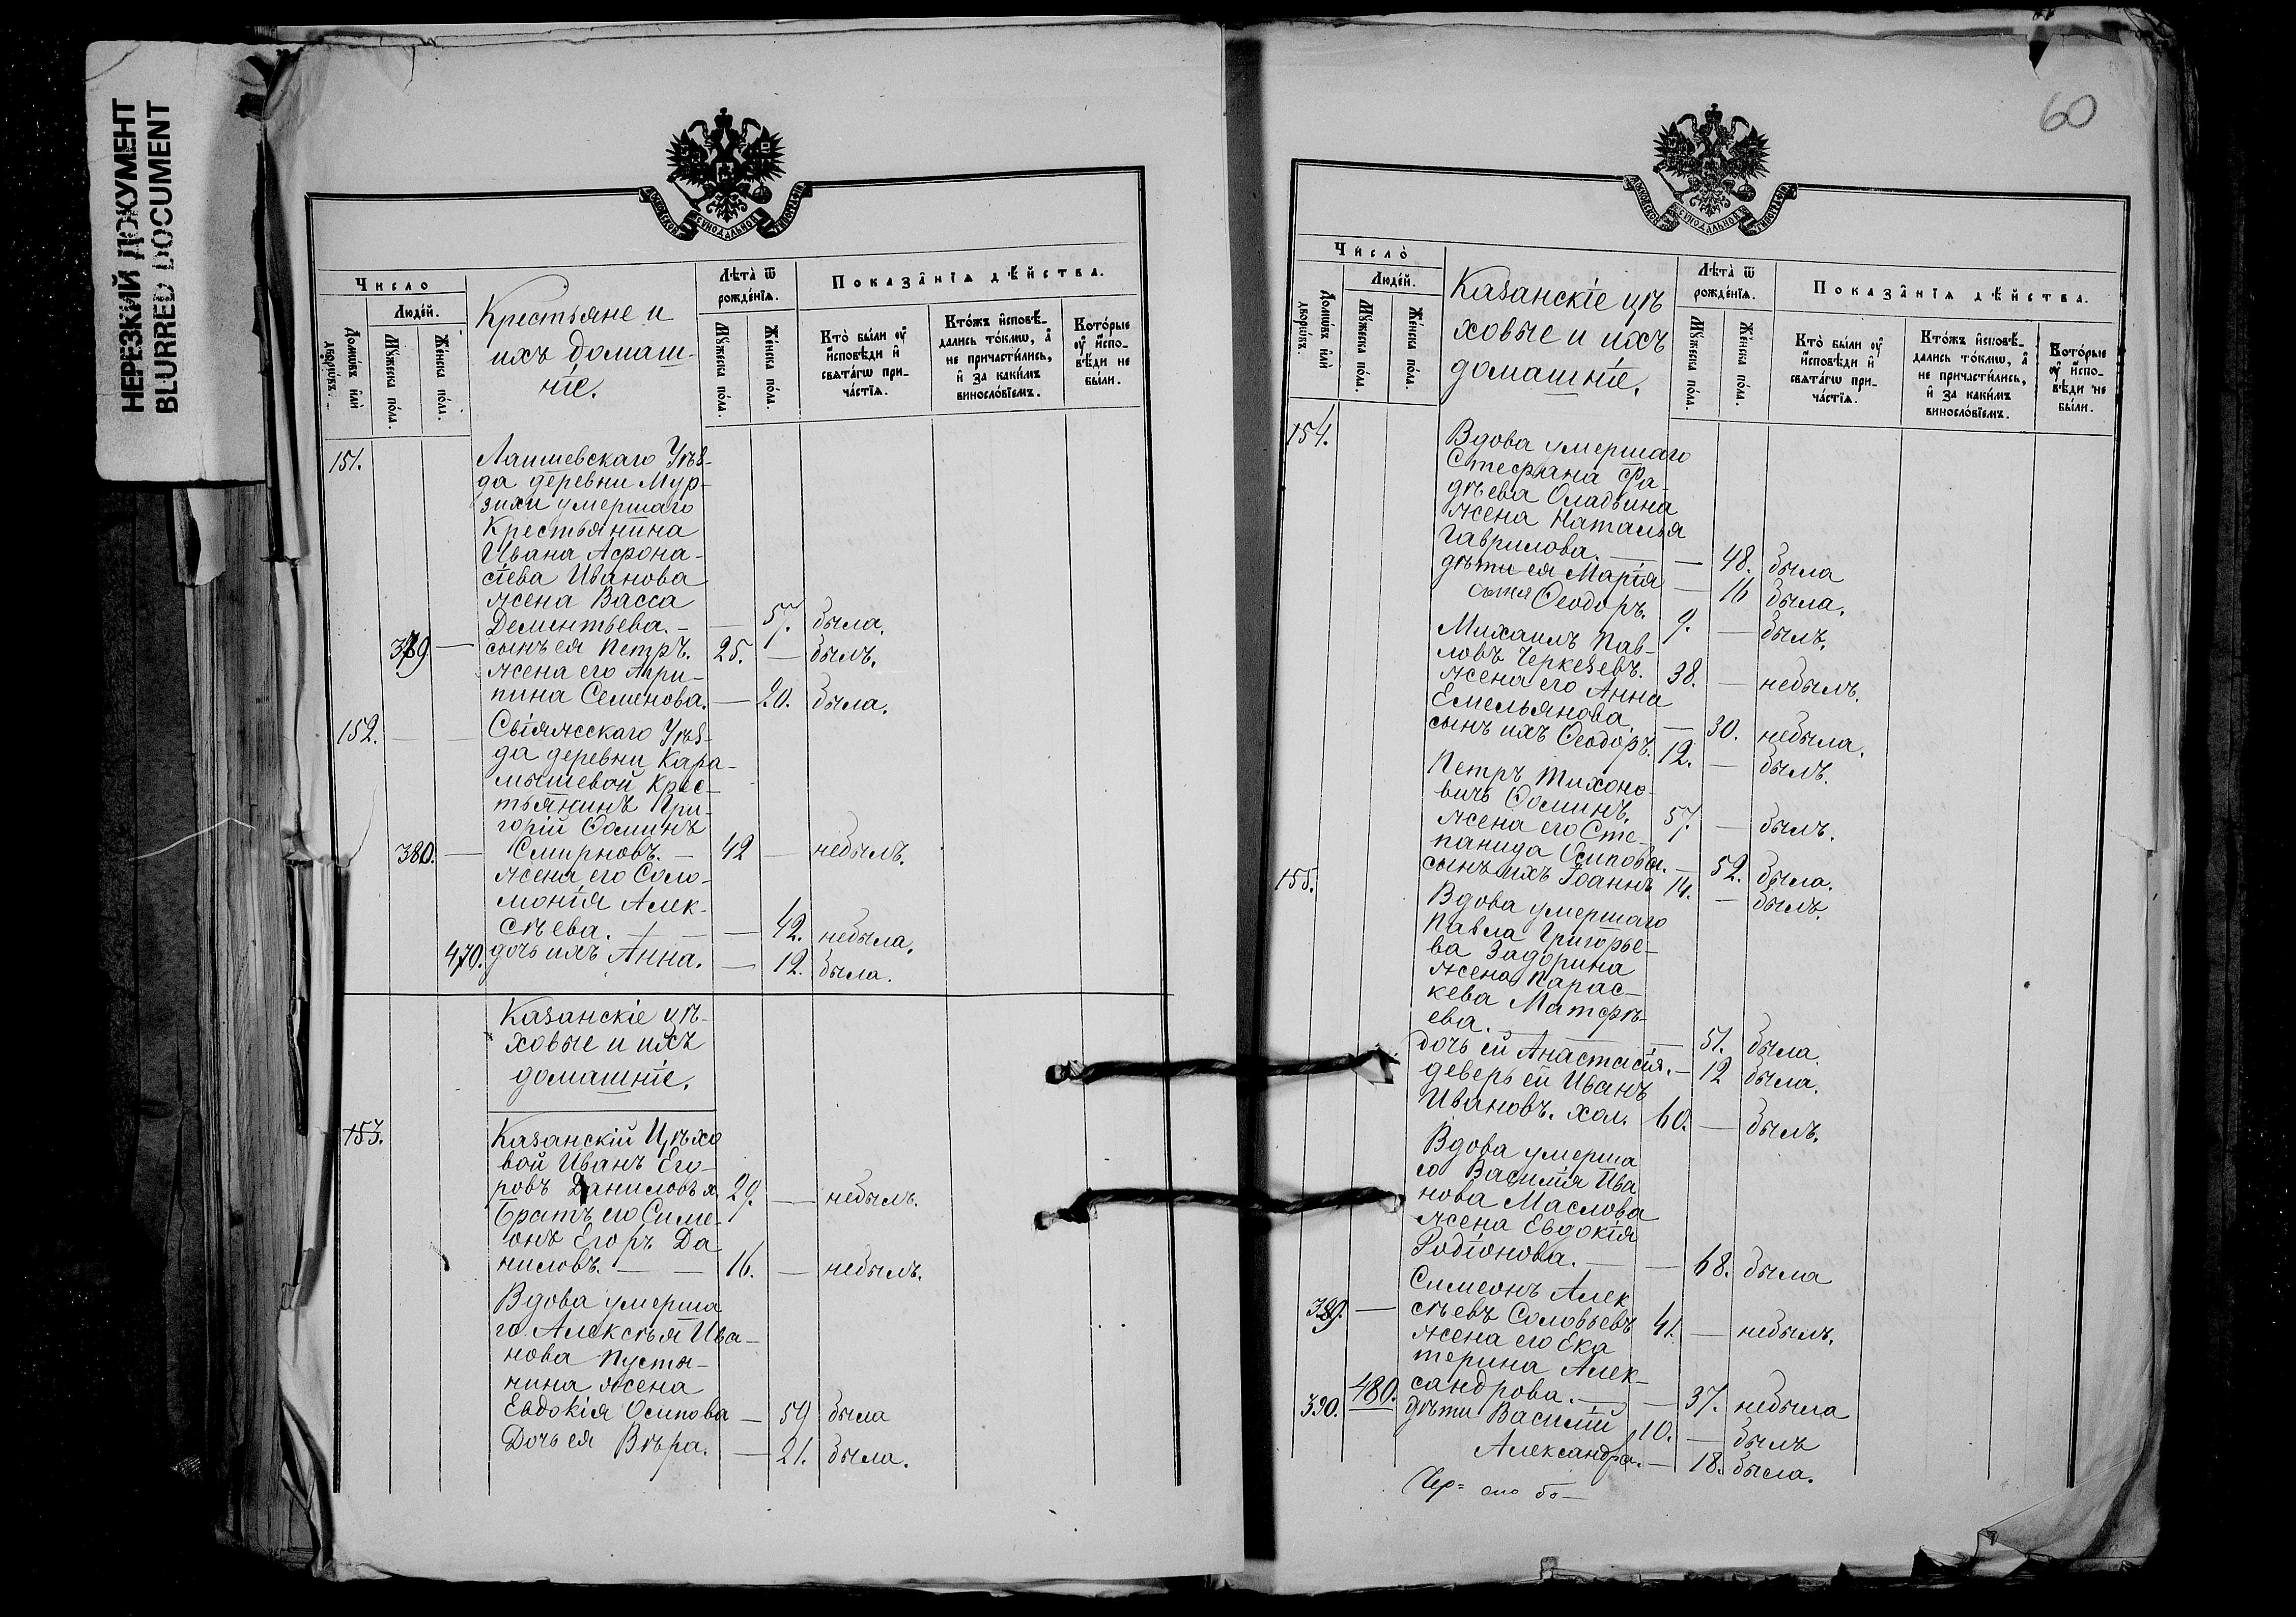 НЕРЕЗКИЙ ДОКУМЕНТ
BLURRED DOCUMENT
МОСКОВСКОЙ СѴНОДАЛЬНОЙ ТИПОГРАФІИ
Число
Людей.
Домѡвъ или дворѡвъ.
Мꙋжеска пола.
Женска пола.
Крестьяне и
ихъ домаш-
ніе.
Лѣта ѿ
рожденїѧ.
Мꙋжеска пола.
Женска пола.
Показанїѧ дѣйства.
Кто были оу
исповѣди и
свѧтагѡ при-
частїѧ.
Ктожъ исповѣ-
дались токмѡ, а
не причастились,
и за какимъ
винословїемъ.
Которые
оу испо-
вѣди не
были.
151. Лаишевскаго Уѣз-
да деревни Мур-
зихи умершаго
Крестьянина
Ивана Афона-
сіева Иванова
жена Васса
Дементьева. — — 57. была.
379 — сынъ ея Петръ. 25. — былъ.
жена его Агри-
пина Семенова. — 20. была.
152. — — Свіяжскаго Уѣз-
да деревни Кара-
мышевой Крес-
тьянинъ Гри-
горій Ѳоминъ
380. — Смирновъ. — 42 — небылъ.
жена его Соло-
монія Алек-
сѣева. — — — 42. небыла.
470. дочь ихъ Анна. — 12. была.
Казанскіе цѣ-
ховые и ихъ
домашніе.
153. Казанскій Цѣхо
вой Иванъ Его-
ровъ Даниловъ х. 29. — небылъ.
Братъ его Симе-
онъ Егоръ Да
ниловъ. — — 16. — небылъ.
Вдова умерша
го Алексѣя Ива-
нова Пусты-
нина жена
Евдокія Осипова — 59 была
Дочь ея Вѣра. — 21. была.
60
МОСКОВСКОЙ СѴНОДАЛЬНОЙ ТИПОГРАФІИ
Число
Людей.
Домѡвъ или дворѡвъ.
Мꙋжеска пола.
Женска пола.
Казанскіе цѣ
ховые и ихъ
домашніе.
Лѣта ѿ
рожденїѧ.
Мꙋжеска пола.
Женска пола.
Показанїѧ дѣйства.
Кто были оу
исповѣди и
свѧтагѡ при-
частїѧ.
Ктожъ исповѣ-
дались токмѡ, а
не причастились,
и за какимъ
винословїемъ.
Которые
оу испо-
вѣди не
были.
154. Вдова умершаго
Стефана Фа-
дѣева Оладьина
жена Наталья
Гаврилова. — — 48. была
дѣти ея Марія — 16 была.
Ѳеодоръ. 9. — былъ.
Михаилъ Пав-
ловъ Черкезевъ. 38. — небылъ.
жена его Анна
Емельянова. — 30. небыла.
сынъ ихъ Ѳеодоръ. 12. — былъ.
Петръ Тихоно-
вичъ Ѳоминъ. 57. — былъ.
жена его Сте-
панида Осипова. — 52. была.
сынъ ихъ Іоаннъ 14. — былъ.
155. Вдова умершаго
Павла Григорье-
ва Задорина
жена Парас-
кева Матфѣ-
ева. — — 51. была
дочь ей Анастасія. — 12 была.
деверь ей Иванъ
Ивановъ. хол. 60. — былъ.
Вдова умерша
го Василія Ива
нова Маслова
жена Евдокія
Родіонова. — — 68. была
Симеонъ Алек
389. — сѣевъ Соловьевъ 41. — небылъ.
жена его Ека
терина Алек-
480. сандрова. — — 37. небыла
390. дѣти Василій 10. — былъ
Александра. — 18. была.